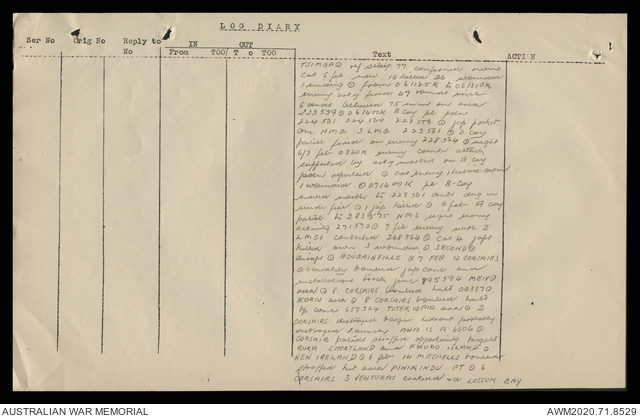 LOG DIARY
Ser No Orig No Reply to No IN From TOO OUT To TOO Text ACTION
TSIMBA ⊙ ref sitrep 77 confirmed
Cas 6 feb now 10 killed 26 wounded
1 missing ⊙ from 061125K to 061310K
enemy arty fired 47 rounds
between 75 on area
223559 ⊙ 061400K B Coy
224561 224560 223559 ⊙ jap pocket
one MMG 3 LMG 223561 ⊙ D Coy
patrol fired on enemy 228564 ⊙ night
6/7 feb 0320K enemy counter attack
supported by arty mortars on B Coy
posn repulsed ⊙ cas enemy killed own
1 wounded ⊙ 071400K pl B Coy
moved north to 223561 and dug in
under fire ⊙ 1 jap killed ⊙ 6 feb A Coy
patrol to 283575 NMG signs enemy
activity 271570 ⊙ 7 feb enemy with 2
LMGS contacted 268564 ⊙ cas 4 japs
killed own 3 wounded ⊙ SECOND ⊙
airops ⊙ BOUGAINVILLE ⊙ 7 FEB 12 CORSAIRS
accurately bombed jap conc and
installations track junc 895594 MEIVO
area ⊙ 8 CORSAIRS bombed huts 003570
KORIU area ⊙ 8 CORSAIRS bombed huts
tp conc 657324 area ⊙ 2
CORSAIRS destroyed barge hideout probably
destroyed launch R 6606 ⊙
CORSAIR patrols strafed opportunity targets
BUKA SHORTLAND and FAURO ISLAND ⊙
NEW IRELAND ⊙ 6 feb 14 MITCHELLS bombed
strafed hut area PINIKINDU PT ⊙ 6
CORSAIRS 3 VENTURAS LOSSUK BAY
AUSTRALIAN WAR MEMORIAL
AWM2020.71.8529